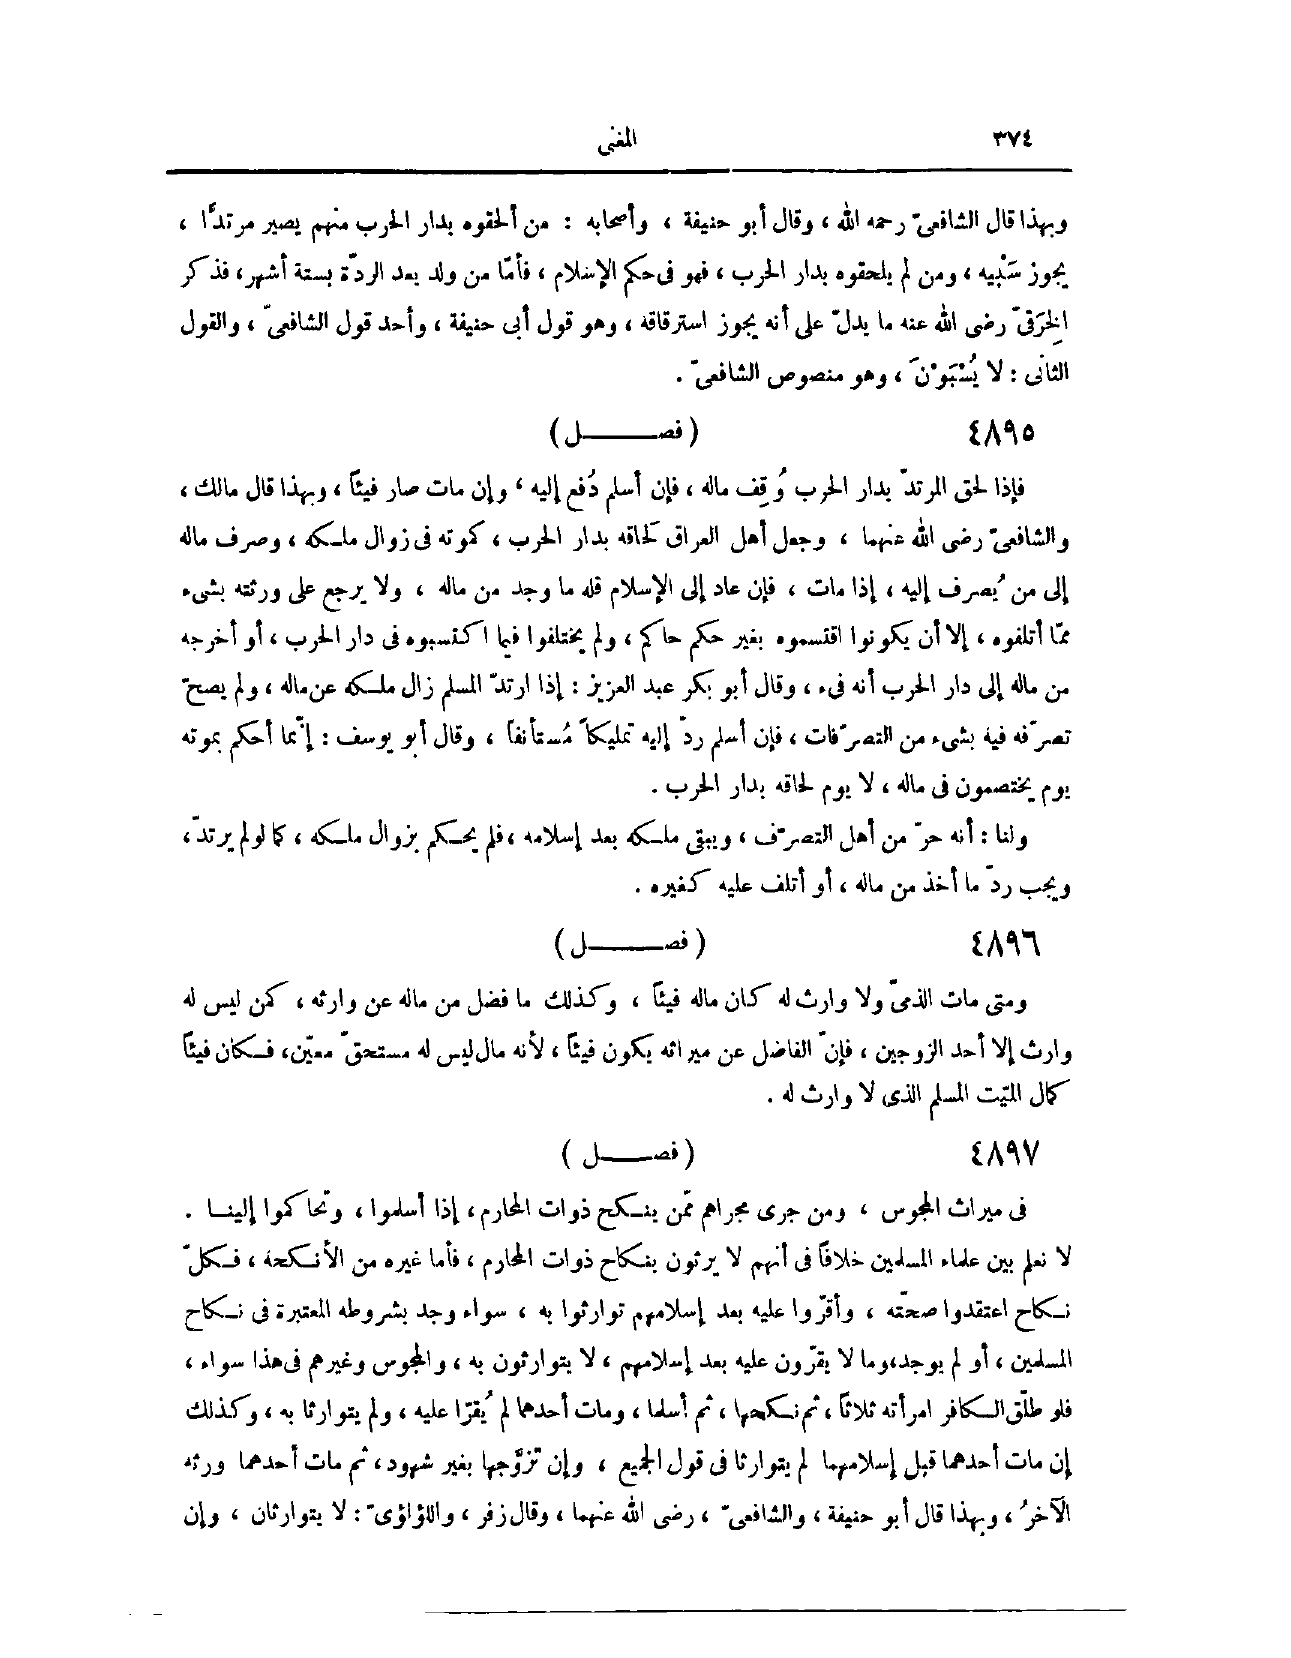 ٣٧٤ المغنى
وبهذا قال الشافعىّ رحمه الله ، وقال أبو حنيفة ، وأصحابه : من ألحقوه بدار الحرب منهم يصير مرتدًّا ،
يجوز سَبْيه ، ومن لم يلحقوه بدار الحرب ، فهو فى حكم الإسلام ، فأمّا من ولد بعد الردّة بستة أشهر، فذكر
الخِرَقىّ رضى الله عنه ما يدلّ على أنه يجوز استرقاقه ، وهو قول أبى حنيفة ، وأحد قول الشافعىّ ، والقول
الثانى : لا يُسْبَوْنَ ، وهو منصوص الشافعىّ .
٤٨٩٥ ( فصــــــل )
فإذا لحق المرتدّ بدار الحرب وُقِف ماله ، فإن أسلم دُفع إليه ، وإن مات صار فيئًا ، وبهذا قال مالك ،
والشافعىّ رضى الله عنهما ، وجعل أهل العراق لَحاقه بدار الحرب ، كموته فى زوال ملـكه ، وصرف ماله
إلى من يُصرف إليه ، إذا مات ، فإن عاد إلى الإسلام فله ما وجد من ماله ، ولا يرجع على ورثته بشىء
ممّا أتلفوه ، إلا أن يكونوا اقتسموه بغير حكم حاكم ، ولم يختلفوا فيما اكتسبوه فى دار الحرب ، أو أخرجه
من ماله إلى دار الحرب أنه فىء ، وقال أبو بكر عبد العزيز : إذا ارتدّ المسلم زال ملـكه عن ماله ، ولم يصحّ
تصرّفه فيه بشىء من التصرّفات ، فإن أسلم ردّ إليه تمليكاً مُستأنفاً ، وقال أبو يوسف : إنّما أحكم بموته
يوم يختصمون فى ماله ، لا يوم لحاقه بدار الحرب .
ولنا : أنه حرّ من أهل التصرّف ، ويبقى ملـكه بعد إسلامه ، فلم يحـكم بزوال ملـكه ، كما لو لم يرتدّ ،
ويجب ردّ ما أخذ من ماله ، أو أتلف عليه كغيره .
٤٨٩٦ ( فصــــــل )
ومتى مات الذمىّ ولا وارث له كان ماله فيئًا ، وكذلك ما فضل من ماله عن وارثه ، كمن ليس له
وارث إلا أحد الزوجين ، فإنّ الفاضل عن ميراثه يكون فيئًا ، لأنه مال ليس له مستحقّ معيّن، فـكان فيئًا
كمال الميّت المسلم الذى لا وارث له .
٤٨٩٧ ( فصــــــل )
فى ميراث المجوس ، ومن جرى مجراهم ممّن ينـكح ذوات المحارم ، إذا أسلموا ، وتحاكموا إلينـا .
لا نعلم بين علماء المسلمين خلافاً فى أنهم لا يرثون بنكاح ذوات المحارم ، فأما غيره من الأنـكحة ، فـكلّ
نـكاح اعتقدوا صحّته ، وأقرّوا عليه بعد إسلامهم توارثوا به ، سواء وجد بشروطه المعتبرة فى نـكاح
المسلمين ، أو لم يوجد،وما لا يقرّون عليه بعد إسلامهم ، لا يتوارثون به ، والمجوس وغيرهم فى هذا سواء ،
فلو طلّق الـكافر امرأته ثلاثاً ، ثم نـكحها ، ثم أسلما ، ومات أحدهما لم يُقرّا عليه ، ولم يتوارثا به ، وكذلك
إن مات أحدهما قبل إسلامهما لم يتوارثا فى قول الجميع ، وإن تزوّجها بغير شهود ، ثم مات أحدهما ورثه
الآخرُ ، وبهذا قال أبو حنيفة ، والشافعىّ ، رضى الله عنهما ، وقال زفر ، واللؤلؤىّ : لا يتوارثان ، وإن